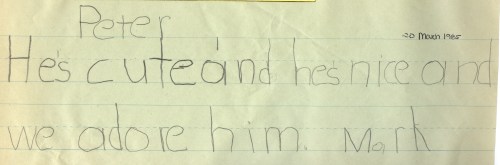 Peter
20 March 1985
He's cute and he's nice and
we adore him. Mark